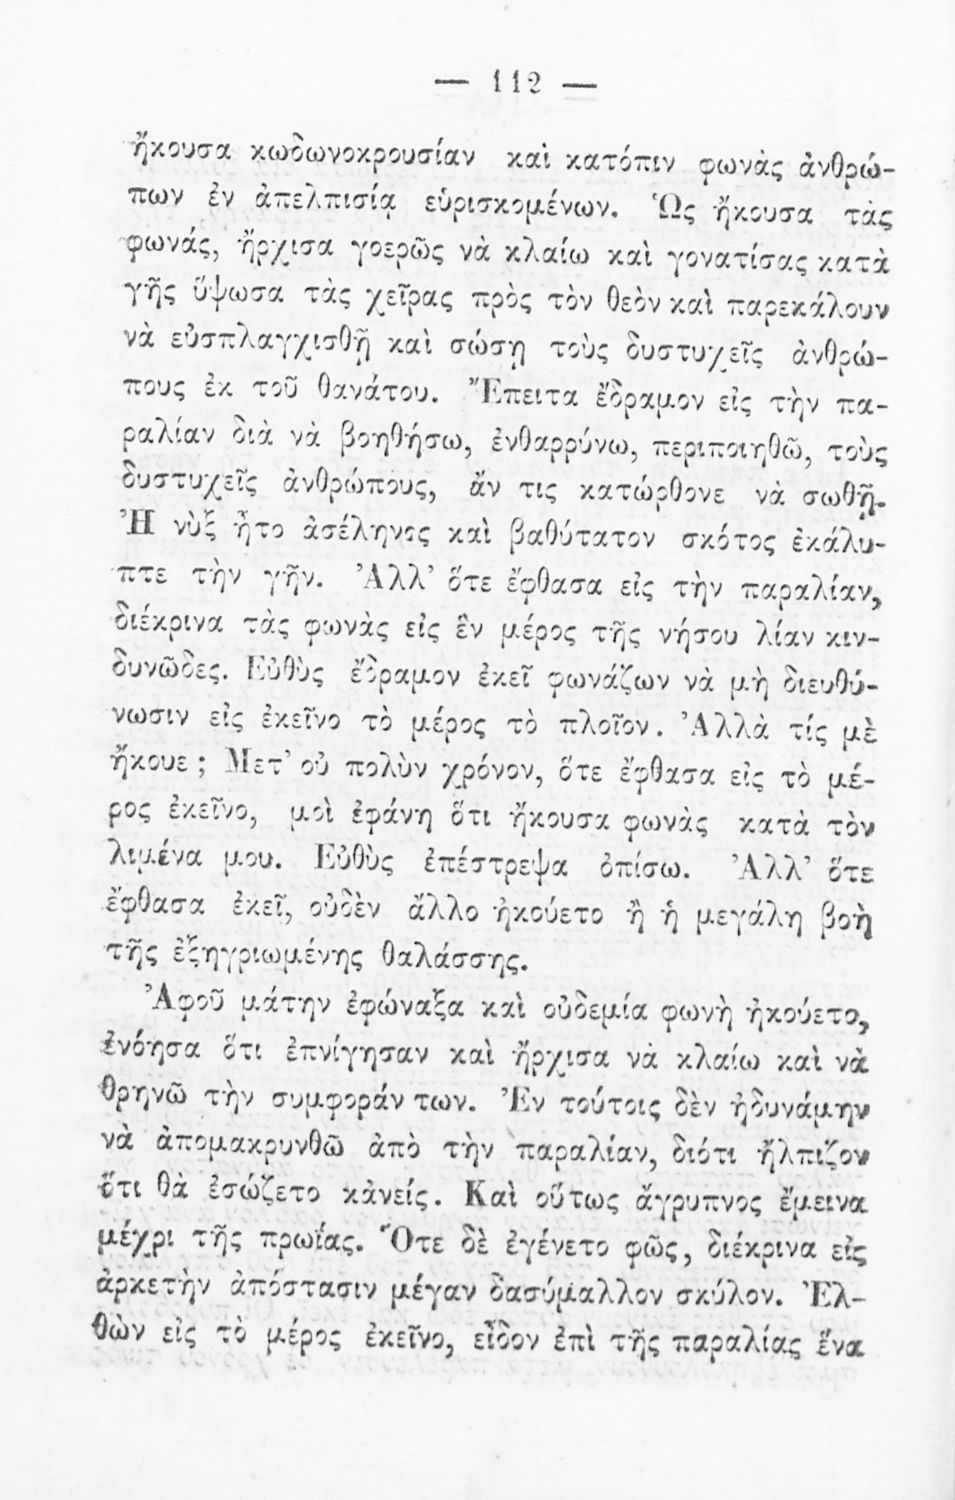 — 112 —
ἤκουσα κωδωνοκρουσίαν καὶ κατόπιν φωνὰς ἀνθρώ-
πων ἐν ἀπελπισίᾳ εὑρισκομένων. Ὡς ἤκουσα τὰς
φωνάς, ἤρχισα γοερῶς νὰ κλαίω καὶ γονατίσας κατὰ
γῆς ὕψωσα τὰς χεῖρας πρὸς τὸν θεὸν καὶ παρεκάλουν
νὰ εὐσπλαγχισθῇ καὶ σώσῃ τοὺς δυστυχεῖς ἀνθρώ-
πους ἐκ τοῦ θανάτου. Ἔπειτα ἔδραμον εἰς τὴν πα-
ραλίαν διὰ νὰ βοηθήσω, ἐνθαρρύνω, περιποιηθῶ, τοὺς
δυστυχεῖς ἀνθρώπους, ἄν τις κατώρθονε νὰ σωθῇ.
Ἡ νὺξ ἦτο ἀσέληνος καὶ βαθύτατον σκότος ἐκάλυ-
πτε τὴν γῆν. Ἀλλ’ ὅτε ἔφθασα εἰς τὴν παραλίαν,
διέκρινα τὰς φωνὰς εἰς ἓν μέρος τῆς νήσου λίαν κιν-
δυνῶδες. Εὐθὺς ἔδραμον ἐκεῖ φωνάζων νὰ μὴ διευθύ-
νωσιν εἰς ἐκεῖνο τὸ μέρος τὸ πλοῖον. Ἀλλὰ τίς μὲ
ἤκουε; Μετ’ οὐ πολὺν χρόνον, ὅτε ἔφθασα εἰς τὸ μέ-
ρος ἐκεῖνο, μοὶ ἐφάνη ὅτι ἤκουσα φωνὰς κατὰ τὸν
λιμένα μου. Εὐθὺς ἐπέστρεψα ὀπίσω. Ἀλλ’ ὅτε
ἔφθασα ἐκεῖ, οὐδὲν ἄλλο ἠκούετο ἢ ἡ μεγάλη βοὴ
τῆς ἐξηγριωμένης θαλάσσης.
Ἀφοῦ μάτην ἐφώναξα καὶ οὐδεμία φωνὴ ἠκούετο,
ἐνόησα ὅτι ἐπνίγησαν καὶ ἤρχισα νὰ κλαίω καὶ νὰ
θρηνῶ τὴν συμφοράν των. Ἐν τούτοις δὲν ἠδυνάμην
νὰ ἀπομακρυνθῶ ἀπὸ τὴν παραλίαν, διότι ἤλπιζον
ὅτι θὰ ἐσώζετο κἀνείς. Καὶ οὕτως ἄγρυπνος ἔμεινα
μέχρι τῆς πρωίας. Ὅτε δὲ ἐγένετο φῶς, διέκρινα εἰς
ἀρκετὴν ἀπόστασιν μέγαν δασύμαλλον σκύλον. Ἐλ-
θὼν εἰς τὸ μέρος ἐκεῖνο, εἶδον ἐπὶ τῆς παραλίας ἕνα